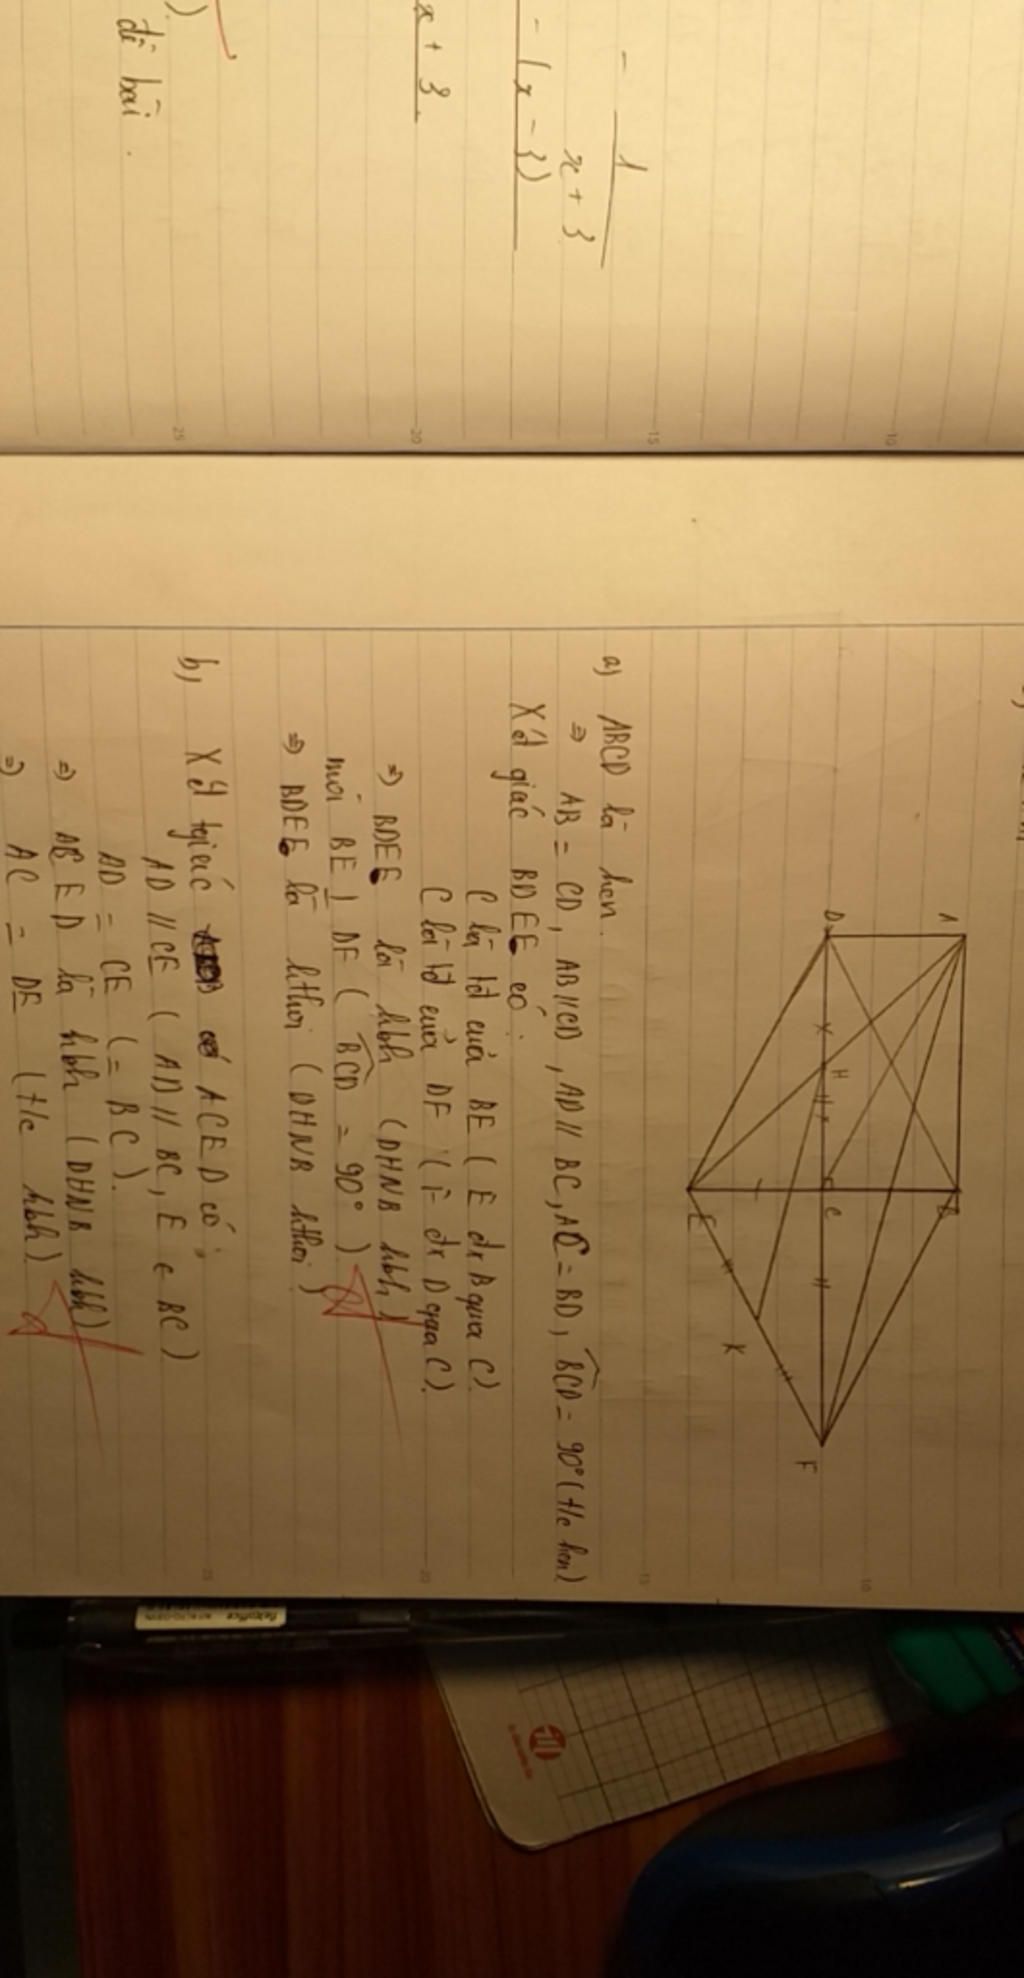 - 1
x + 3
- (x - 3)
x + 3
)
đề bài .
10
15
20
25
A
B
D
H
C
E
K
F
10
15
20
25
a) ABCD là hcn.
⇒ AB = CD, AB//CD, AD // BC, AC = BD, BCD = 90° (t/c hcn)
Xét giác BDEF có :
C là tđ của BE ( E đx B qua C)
C là tđ của DF ( F đx D qua C).
⇒ BDEF là hbh (DHNB hbh)
mà BE ⊥ DF ( BCD = 90° )
⇒ BDEF là hthoi ( DHNB hthoi )
b, Xét tgiác ACED có ;
AD // CE ( AD // BC, E ∈ BC )
AD = CE ( = BC ).
⇒ ACED là hbh (DHNB hbh)
⇒ AC = DE (t/c hbh)